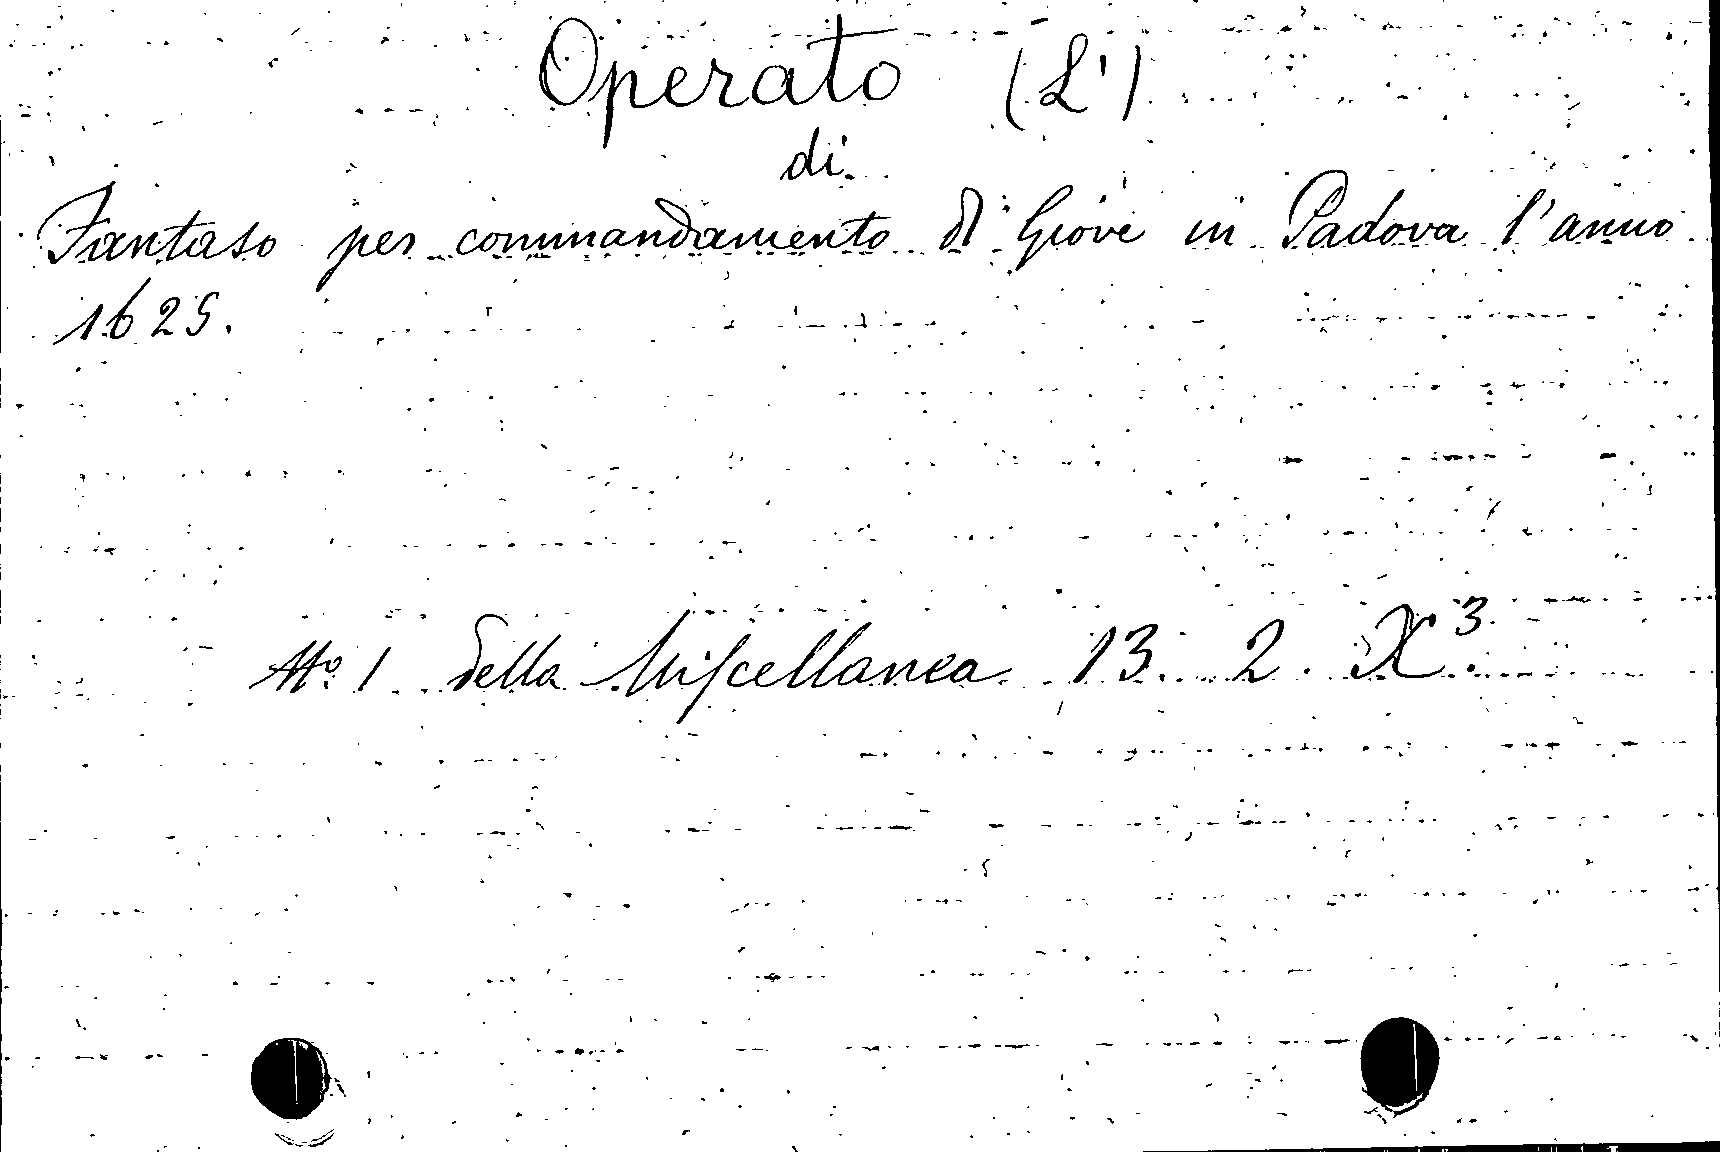 Operato (L')
di
Fantaso per commandamento di Giove in Padova l'anno
1625.
Nº. 1 della Miscellanea 13. 2. X³.